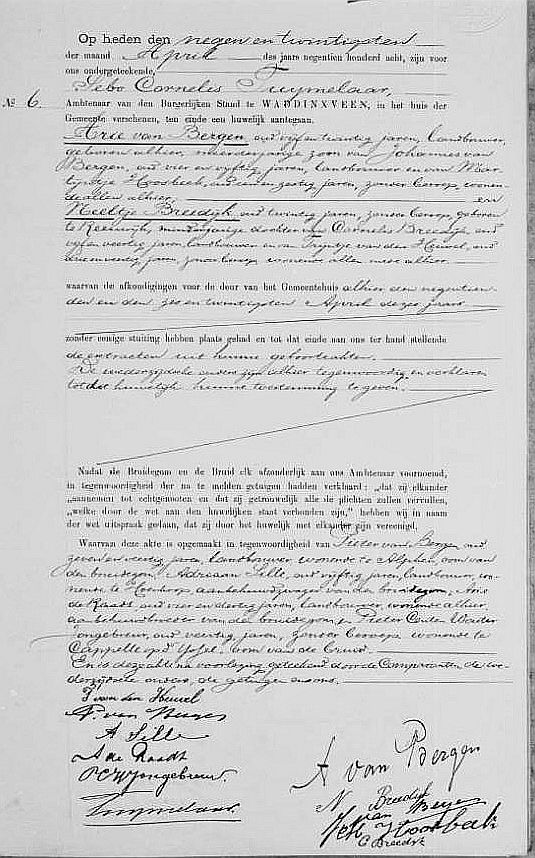 Op heden den negen en twintigsten
der maand April des jaars negentien honderd acht, zijn voor
ons ondergeteekende,
Sebo Cornelis Tuymelaar,
№ 6. Ambtenaar van den Burgerlijken Stand te WADDINXVEEN, in het huis der
Gemeente verschenen, ten einde een huwelijk aantegaan.
Arie van Bergen, oud vijf en twintig jaren, landbouwer,
geboren alhier, meerderjarige zoon van Johannes van
Bergen, oud vier en vijftig jaren, landbouwer en van Maar
tijntje Hoosbeek, oud een en zestig jaren, zonder beroep, wonen
de allen alhier, en
Neeltje Breedijk, oud twintig jaren, zonder beroep, geboren
te Reeuwijk, minderjarige dochter van Cornelis Breedijk, oud
vijf en veertig jaren, landbouwer en van Trijntje van den Heuvel, oud
jaren, zonder beroep, wonende allen mede alhier.
waarvan de afkondigingen voor de deur van het Gemeentehuis alhier den negentien
den en den zes en twintigsten April dezes jaars
zonder eenige stuiting hebben plaats gehad en tot dat einde aan ons ter hand stellende
de extracten uit hunne geboorteakten.
De wederzijdsche ouders zijn alhier tegenwoordig en verklaren
tot dit huwelijk hunne toestemming te geven.
Nadat de Bruidegom en de Bruid elk afzonderlijk aan ons Ambtenaar voornoemd,
in tegenwoordigheid der na te melden getuigen hadden verklaard: „dat zij elkander
„aannemen tot echtgenooten en dat zij getrouwelijk alle de plichten zullen vervullen,
„welke door de wet aan den huwelijken staat verbonden zijn," hebben wij in naam
der wet uitspraak gedaan, dat zij door het huwelijk met elkander zijn vereenigd.
Waarvan deze akte is opgemaakt in tegenwoordigheid van Pieter van Bergen, oud
zeven en veertig jaren, landbouwer wonende te Alphen, oom van
den bruidegom, Adriaan Sille, oud vijftig jaren, landbouwer, wo-
nende te aanbehuwdzwager van den bruidegom, Arie
de Raadt, oud vier en dertig jaren, landbouwer, wonende alhier,
aanbehuwdbroeder van den bruidegom, en Pieter Wouter
Jongebreur, oud veertig jaren, zonder beroep, wonende te
Cappelle op d'Ijssel, oom van de bruid.
En is deze akte na voorlezing geteekend door de Comparanten, de we-
derzijdsche ouders, de getuigen en ons.
T van den Heuvel
P. van Bergen
A Sille
A de Raadt
P C W Jongebreur.
Tuymelaar.
A van Bergen
N Breedijk
van Bergen
Hoosbeek
C Breedijk